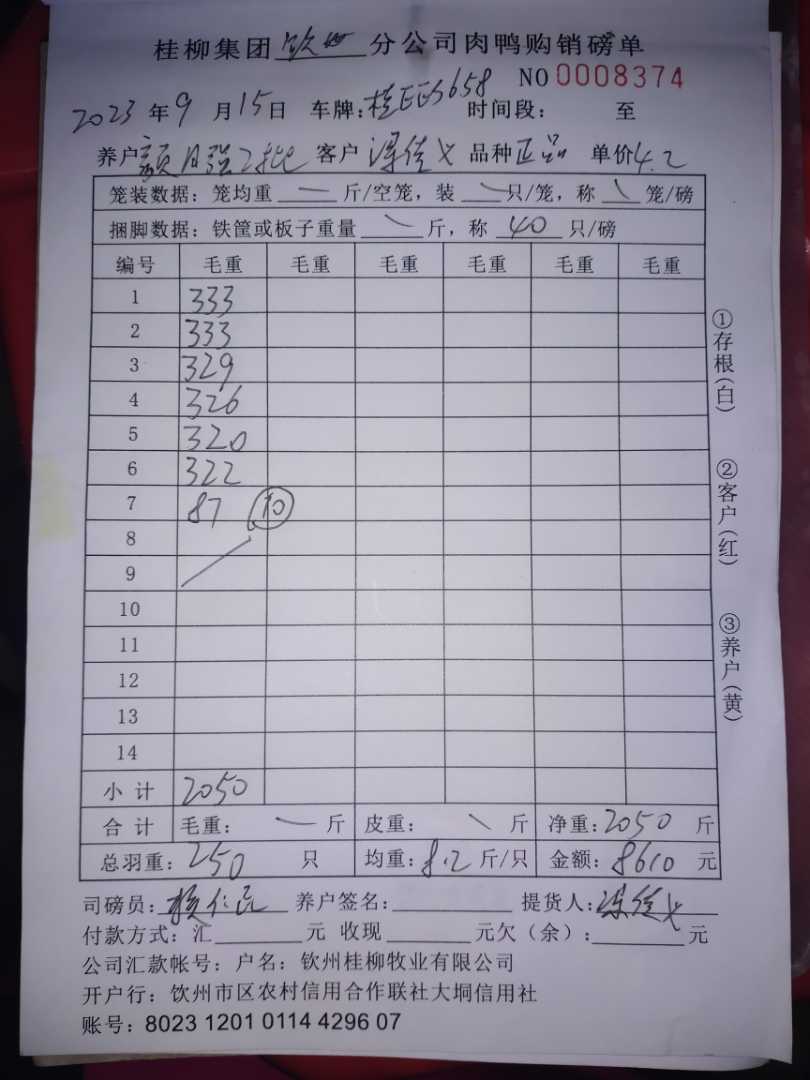 桂柳集团 钦州 分公司肉鸭购销磅单
NO 0008374
2023 年 9 月 15 日 车牌: 658 时间段: 至
养户 二批 客户 品种 正品 单价 4.2
笼装数据: 笼均重 — 斤/空笼, 装 \ 只/笼, 称 \ 笼/磅
捆脚数据: 铁筐或板子重量 \ 斤, 称 40 只/磅
编号 毛重 毛重 毛重 毛重 毛重 毛重
1 333
2 333
3 329
4 326
5 320
6 322
7 87 10
8
9
10
11
12
13
14
小计 2050
合计 毛重: — 斤 皮重: \ 斤 净重: 2050 斤
总羽重: 250 只 均重: 8.2 斤/只 金额: 8610 元
司磅员: 养户签名: 提货人:
付款方式: 汇 元 收现 元欠(余): 元
公司汇款帐号: 户名: 钦州桂柳牧业有限公司
开户行: 钦州市区农村信用合作联社大垌信用社
账号: 8023 1201 0114 4296 07
①存根(白)
②客户(红)
③养户(黄)